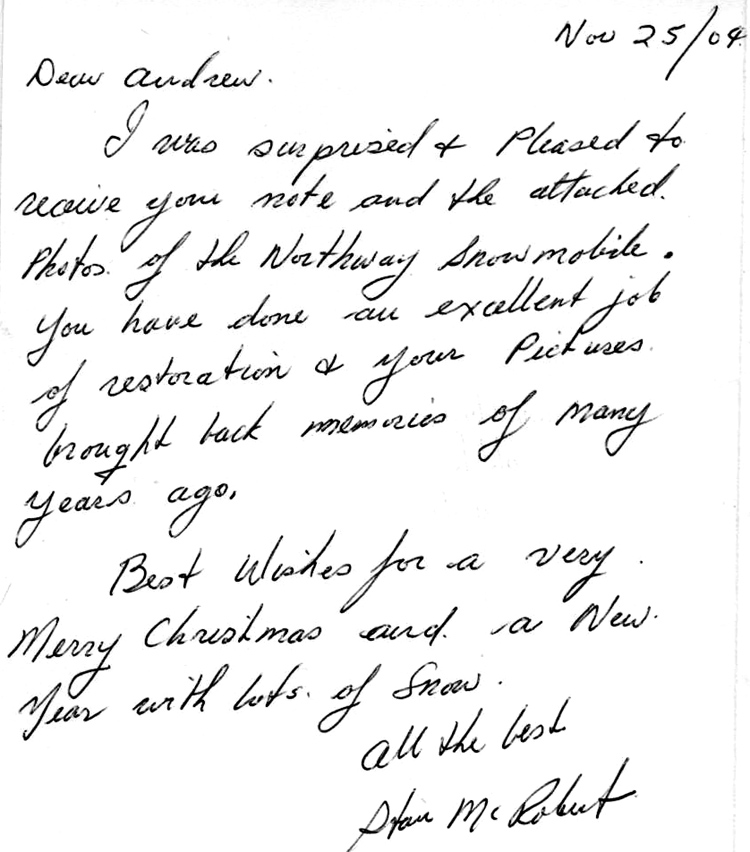 Nov 25/04
Dear Andrew.
I was surprised & Pleased to
receive your note and the attached.
Photos of the Northway Snowmobile.
You have done an excellent job
of restoration & your Pictures.
brought back memories of many
years ago.
Best Wishes for a very
Merry Christmas and a New
Year with lots of Snow.
All the best
Stan McRobert